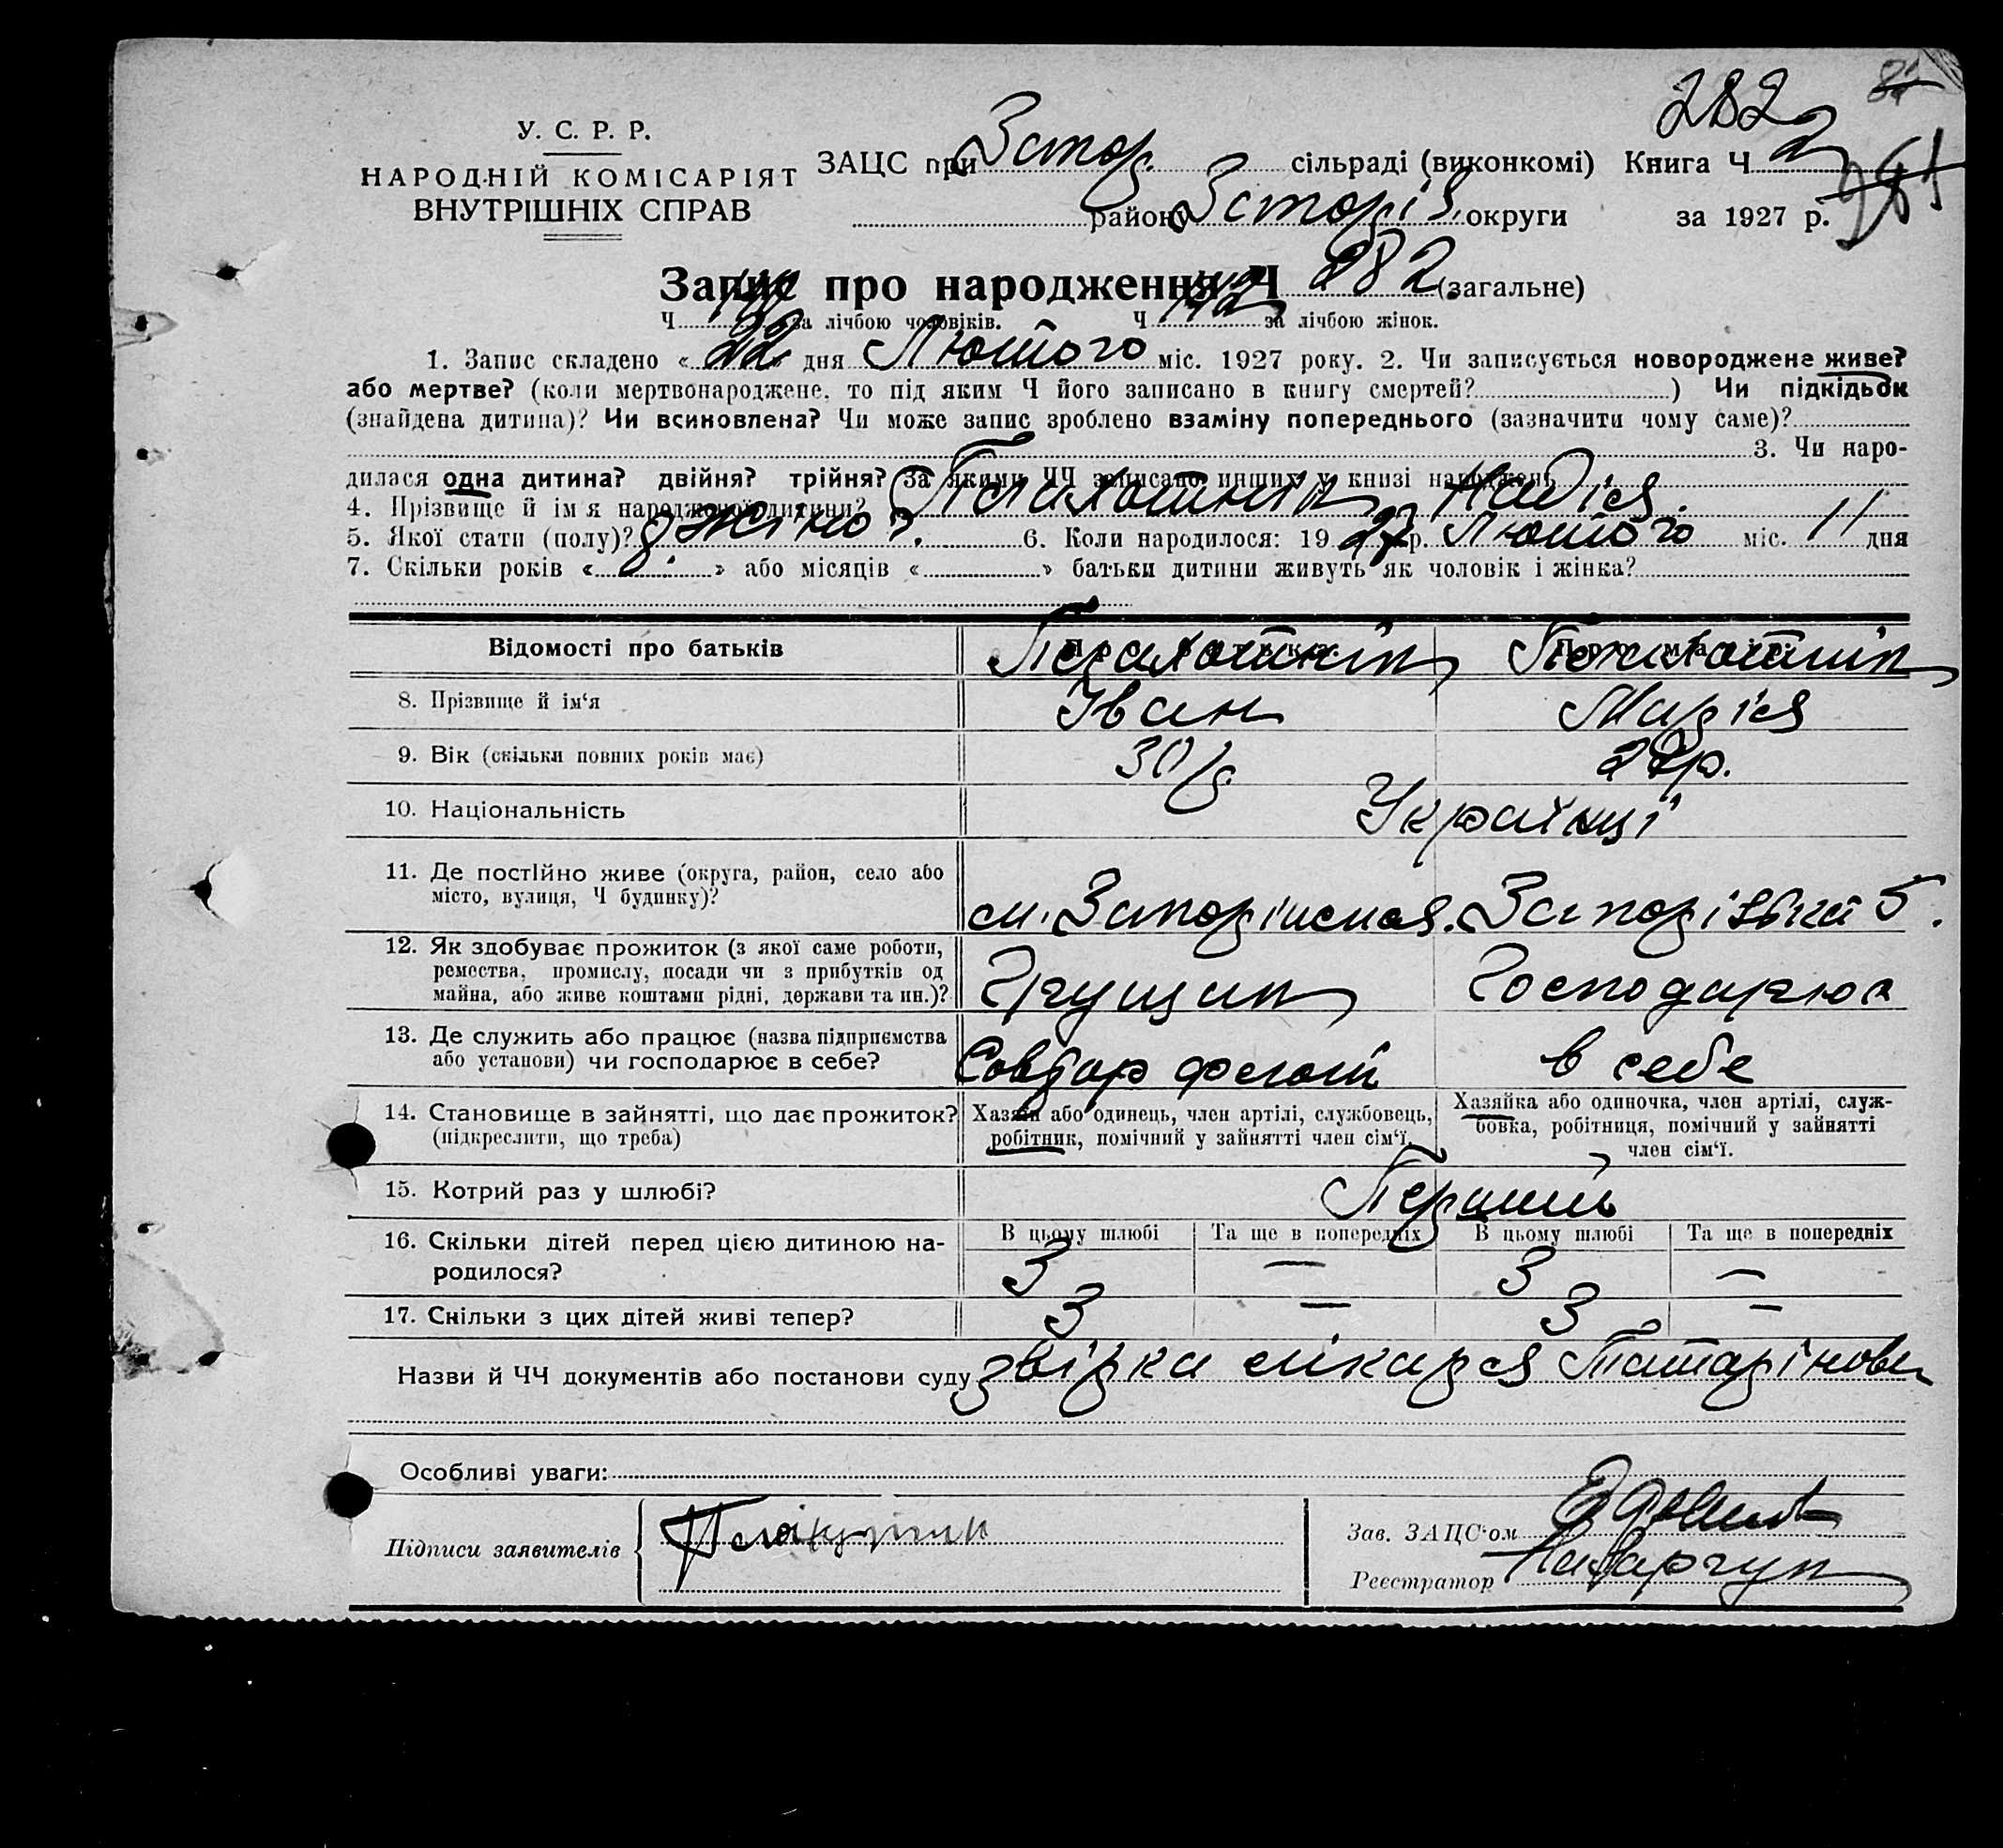 282
У. С. Р. Р.
НАРОДНІЙ КОМІСАРІЯТ
ВНУТРІШНІХ СПРАВ
ЗАЦС при Запор. сільраді (виконкомі) Книга Ч 2
району Запоріз. округи за 1927 р.
Запис про народження Ч 282 (загальне)
Ч за лічбою чоловіків. Ч 142 за лічбою жінок.
1. Запис складено « 22 » дня Лютого міс. 1927 року. 2. Чи записується новороджене живе?
або мертве? (коли мертвонароджене, то під яким Ч його записано в книгу смертей? ) Чи підкідьок
(знайдена дитина)? Чи всиновлена? Чи може запис зроблено взаміну попереднього (зазначити чому саме)?
3. Чи наро-
дилася одна дитина? двійня? трійня? За якими ЧЧ записано инших у книзі народжень
4. Прізвище й ім'я народженої дитини? Надія.
5. Якої статі (полу)? жіноч. 6. Коли народилося: 1927 р. Лютого міс. 11 дня
7. Скільки років « 8. » або місяців « » батьки дитини живуть як чоловік і жінка?
Відомості про батьків
8. Прізвище й ім'я Іван Марія
9. Вік (скільки повних років має) 30 р.
10. Національність Українці
11. Де постійно живе (округа, район, село або
місто, вулиця, Ч будинку)?
12. Як здобуває прожиток (з якої саме роботи,
ремества, промислу, посади чи з прибутків од
майна, або живе коштами рідні, держави та ин.)? Грущик Господарює
13. Де служить або працює (назва підприємства
або установи) чи господарює в себе? Совторфлот в себе
14. Становище в зайнятті, що дає прожиток?
(підкреслити, що треба)
Хазяїн або одинець, член артілі, службовець,
робітник, помічний у зайнятті член сім'ї.
Хазяйка або одиночка, член артілі, служ-
бовка, робітниця, помічний у зайнятті
член сім'ї.
15. Котрий раз у шлюбі? Перший
16. Скільки дітей перед цією дитиною на-
родилося?
В цьому шлюбі Та ще в попередніх В цьому шлюбі Та ще в попередніх
3 — 3 —
17. Скільки з цих дітей живі тепер? 3 — 3 —
Назви й ЧЧ документів або постанови суду звірка лікаря Татарінова
Особливі уваги:
Підписи заявителів
Зав. ЗАЦС'ом
Реєстратор